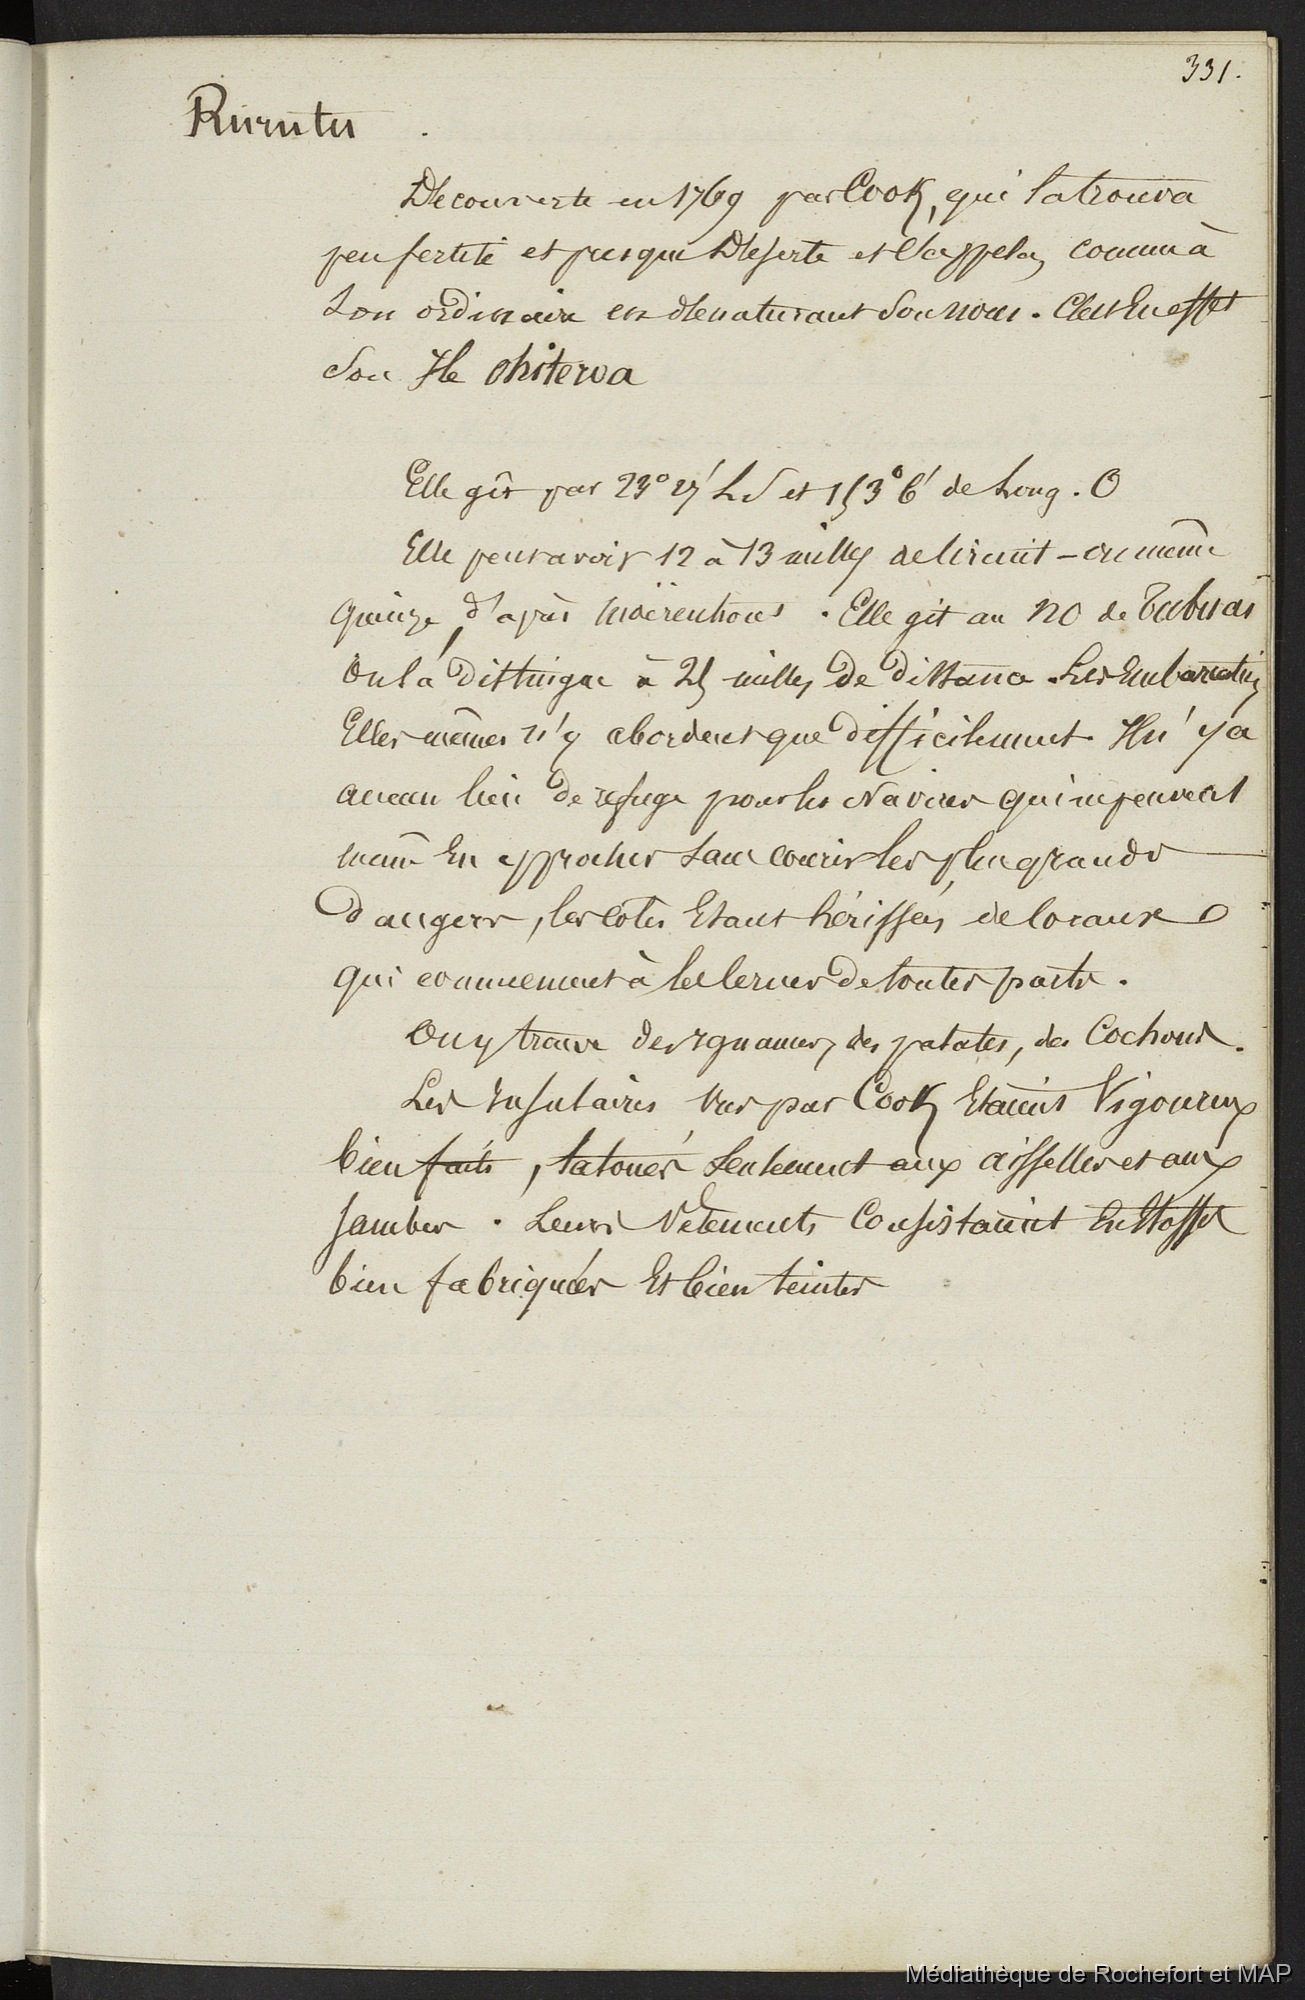 331.
Rurutu
Découverte en 1769 par Cook, qui la trouva
peu fertile et presque Déserte et l'appela, comme à
son ordinaire en dénaturant son nom. C'est en effet
son Ile Ohiteroa
Elle gît par 23° 27' L S et 153° 6' de Long. O
Elle peut avoir 12 à 13 milles de circuit - ou même
quinze, d'après Moërenhout. Elle gît au NO de Tubuai
On la distingue à 25 milles de distance. Les Embarcations
Elles mêmes n'y abordent que difficilement. Il n'y a
aucun lieu de refuge pour les Navires qui ne peuvent
même en approcher sans courir les plus grands
dangers, les côtes étant hérissées de coraux
qui commencent à les cerner de toutes parts.
On y trouve des ignames, des patates, des Cochons.
Les Insulaires vus par Cook Etaient Vigoureux
bien faits, tatoués seulement aux aisselles et aux
jambes. Leurs Vêtements Consistaient En Etoffes
bien fabriquées Et bien teintes
Médiathèque de Rochefort et MAP